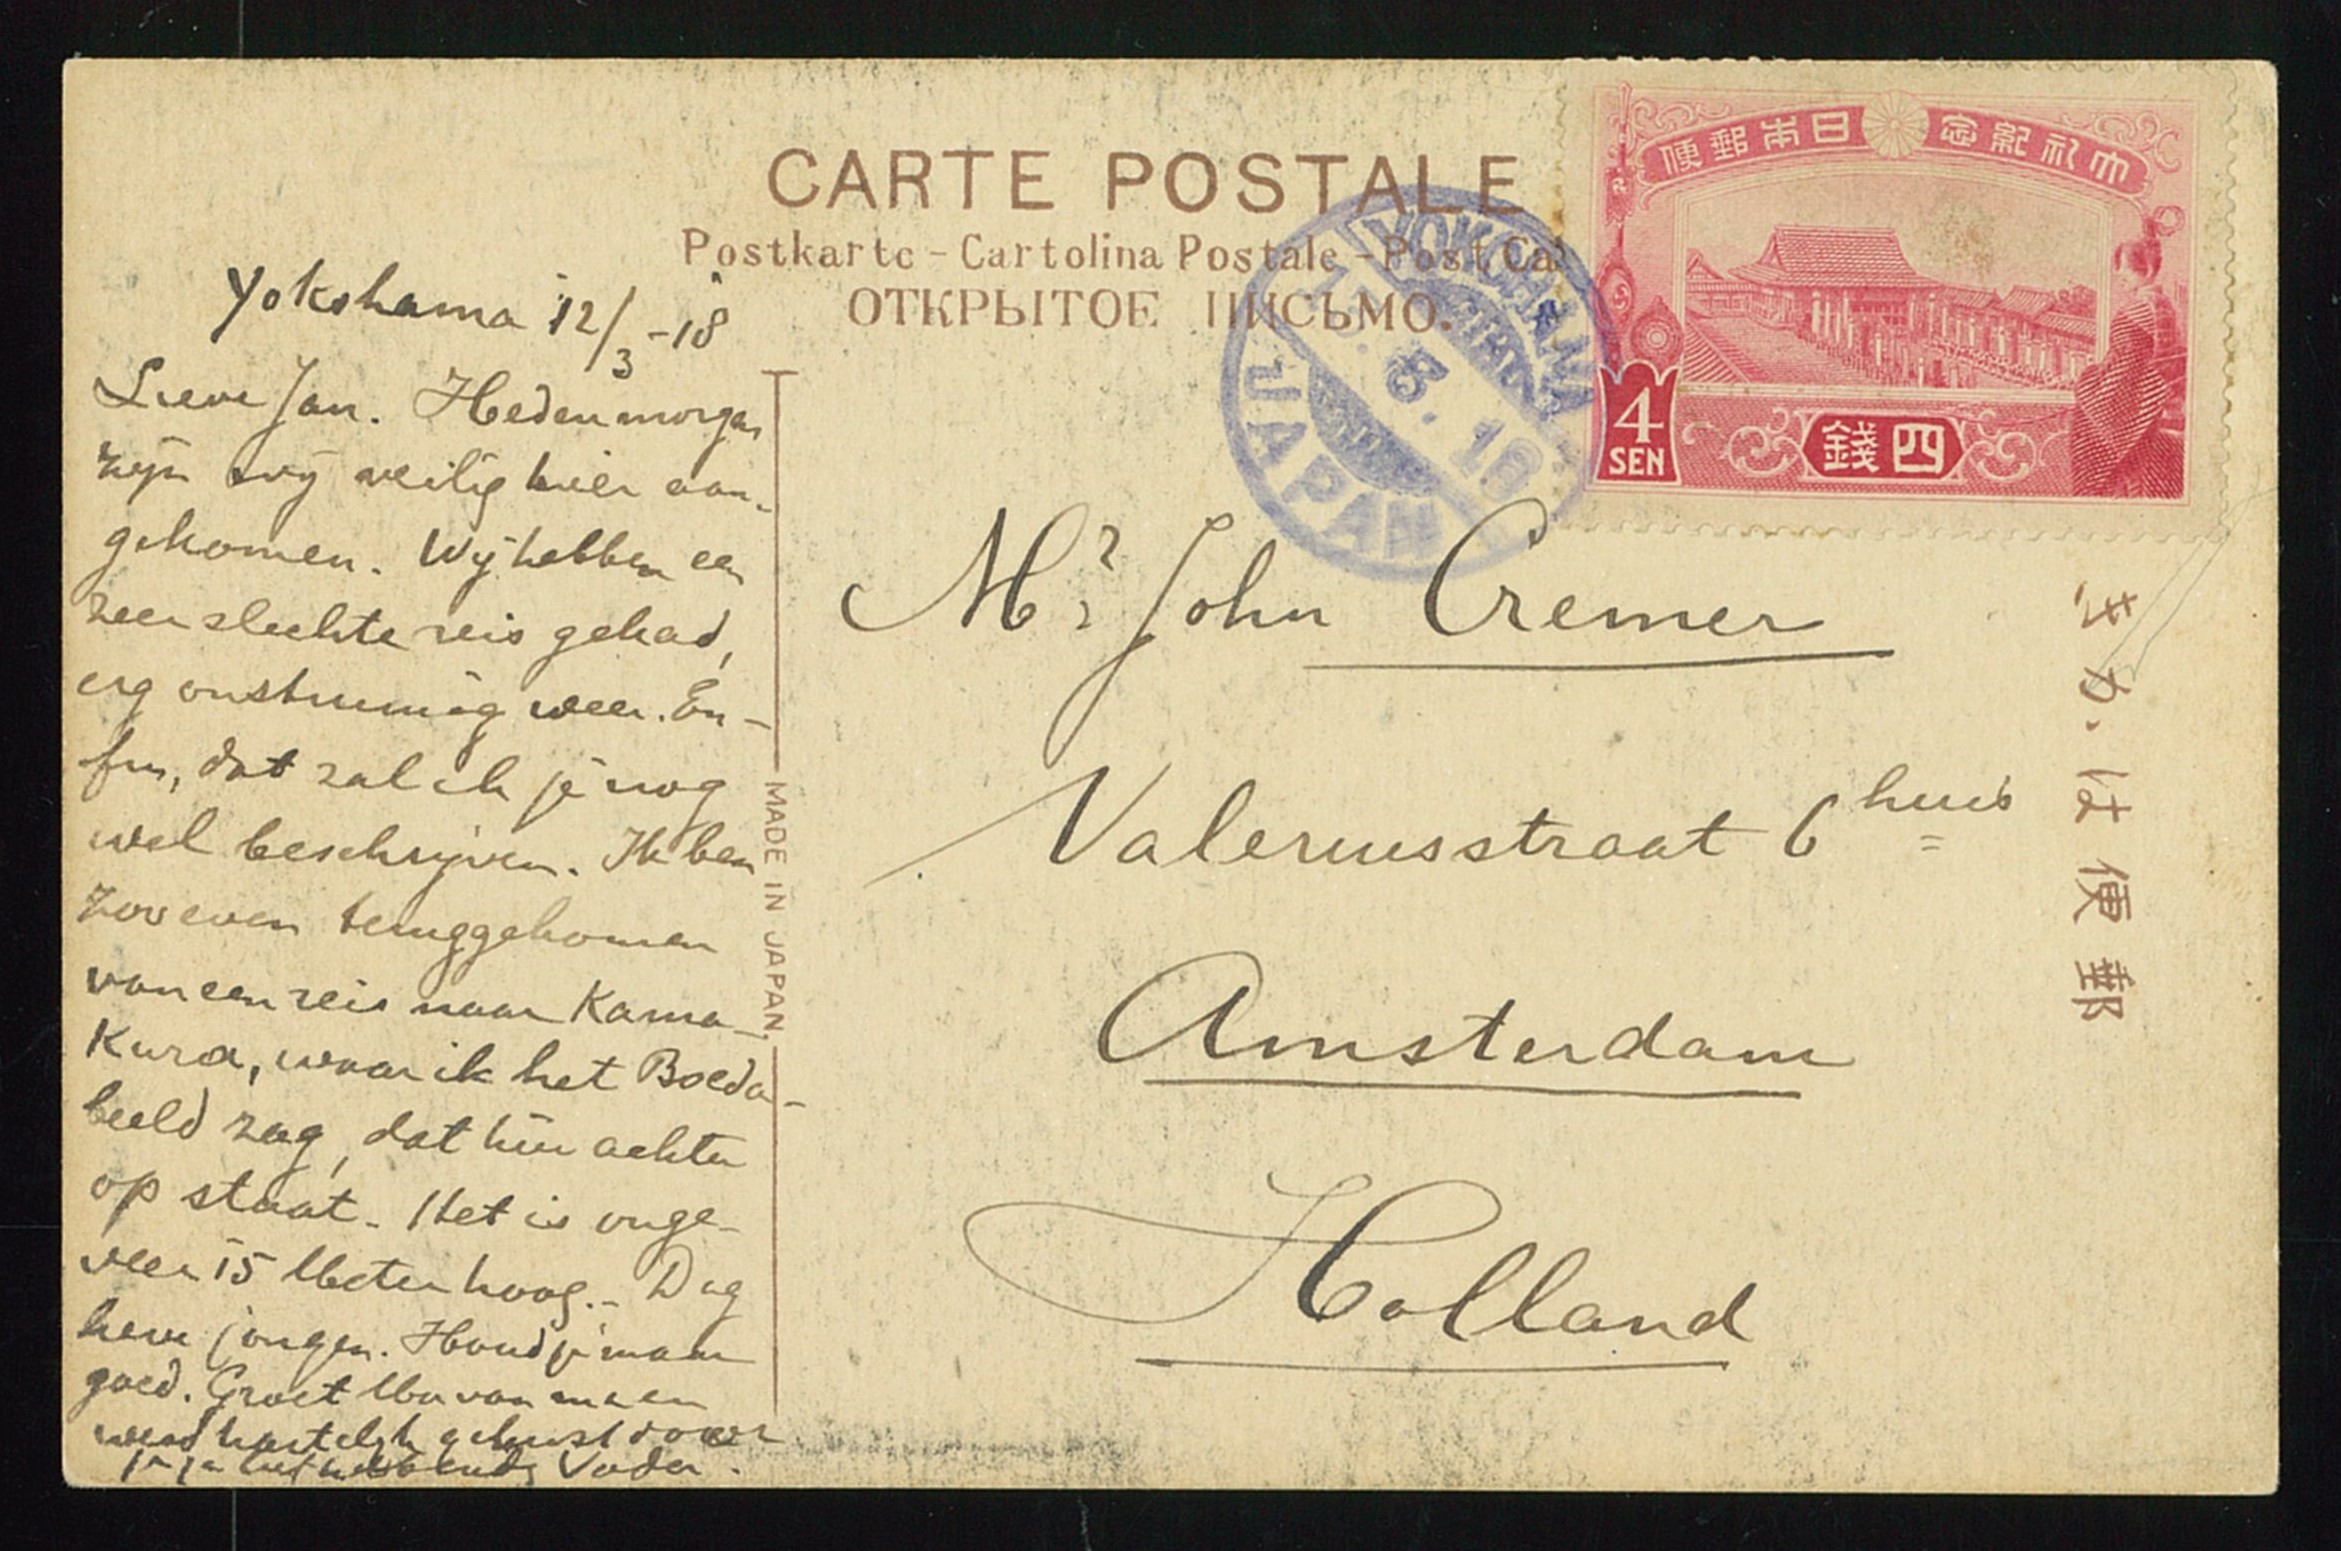 CARTE POSTALE
Postkarte - Cartolina Postale - Post Ca
ОТКРЫТОЕ ПИСЬМО.
大礼紀念 日本郵便
4
SEN
四錢
YOKOHAMA
JAPAN
郵便はかき
MADE IN JAPAN.
Yokohama 12/3 -18
Lieve Jan. Hedenmorgen
zijn wij veilig hier aan-
gekomen. Wij hebben een
zeer slechte reis gehad,
erg onstuimig weer. En-
fin, dat zal ik je nog
wel beschrijven. Ik ben
zooeven teruggekomen
van een reis naar Kama-
Kura, waar ik het Boeda-
beeld zag, dat hier achter
op staat. Het is onge-
veer 15 Meter hoog. - Dag
lieve jongen. Houd je maar
goed. Groet Moe van me en
wees hartelijk gekust door
je je liefhebbende Vader.
Mr. John Cremer
Valeriusstraat 6 huis
Amsterdam
Holland